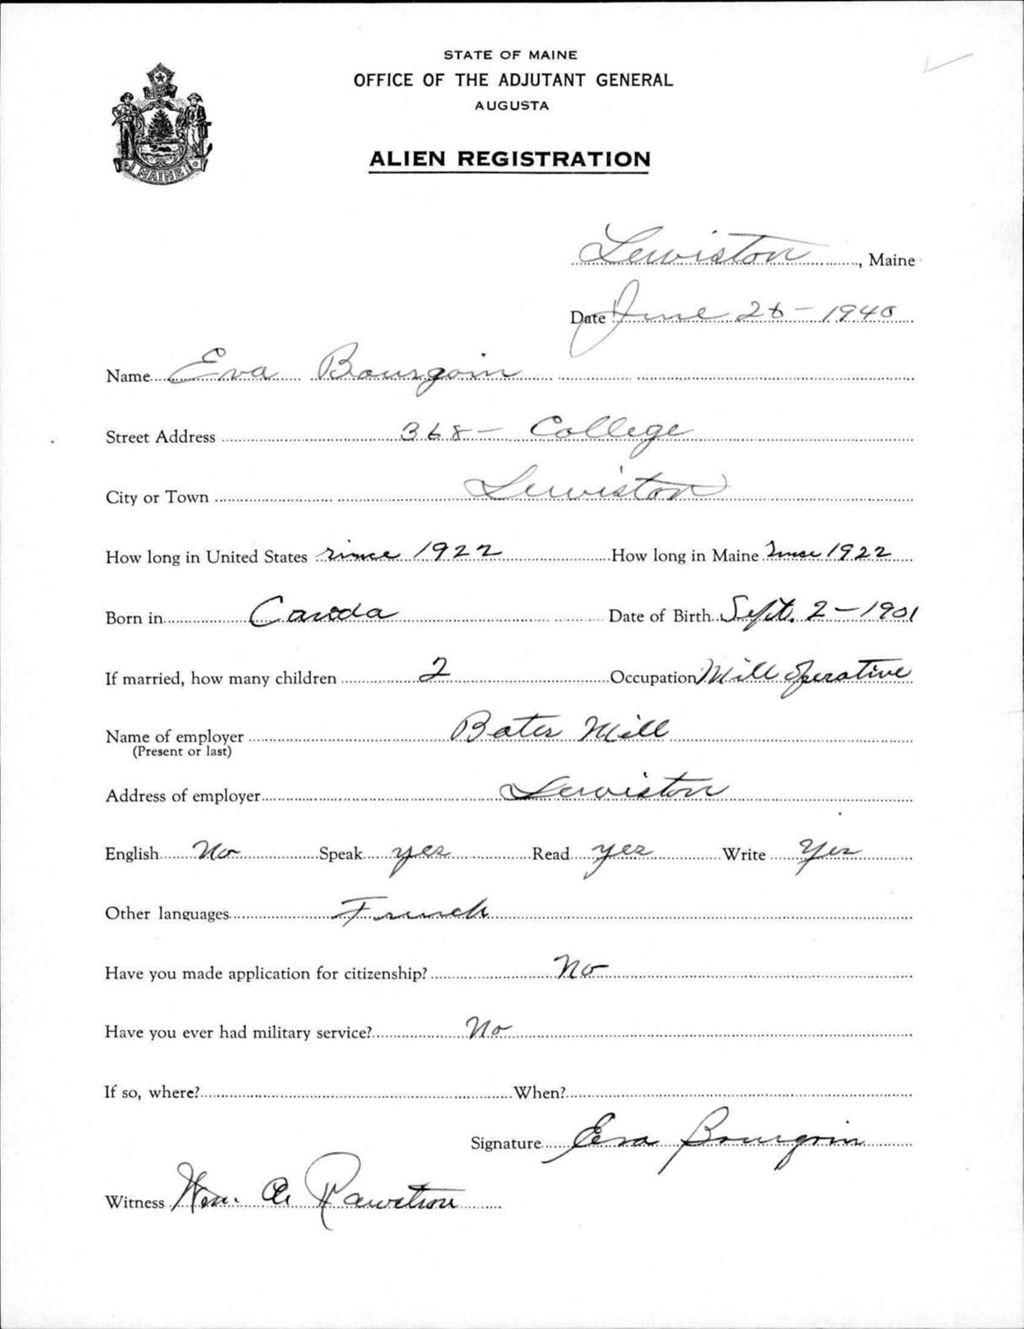 STATE OF MAINE
OFFICE OF THE ADJUTANT GENERAL
AUGUSTA
ALIEN REGISTRATION
MAINE
Lewiston, Maine
Date June 26 - 1940
Name Eva Bourgoin
Street Address 368 - College
City or Town Lewiston
How long in United States since 1922 How long in Maine Since 1922
Born in Canada Date of Birth Sept. 2 - 1901
If married, how many children 2 Occupation Mill Operative
Name of employer Bates Mill
(Present or last)
Address of employer Lewiston
English No Speak yes Read yes Write Yes
Other languages French
Have you made application for citizenship? No
Have you ever had military service? No
If so, where? When?
Signature Eva Bourgoin
Witness Wm. A.